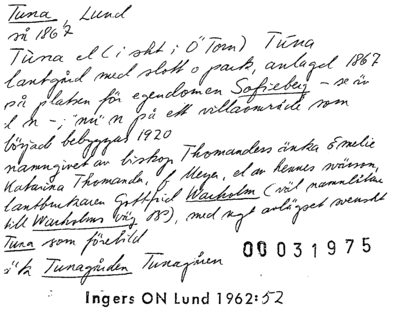 Tuna, Lund
så 1867
Tùna el (i skt i Ö Torn) Túna
lantgård med slott o park, anlagd 1867
på platsen för egendomen Sofieberg – se äv
d n –; nu n på ett villaområde som
började bebyggas 1920
namngivet av biskop Thomanders änka Emelie
Katarina Thomander, f Meyer, el av hennes svärson,
lantbrukaren Gottfrid Warholm (väl namnlåtare
till Warholms väg), med ngt avlägset svenskt
Tuna som förebild
Tunagården Tunagåren
00031975
Ingers ON Lund 1962:52